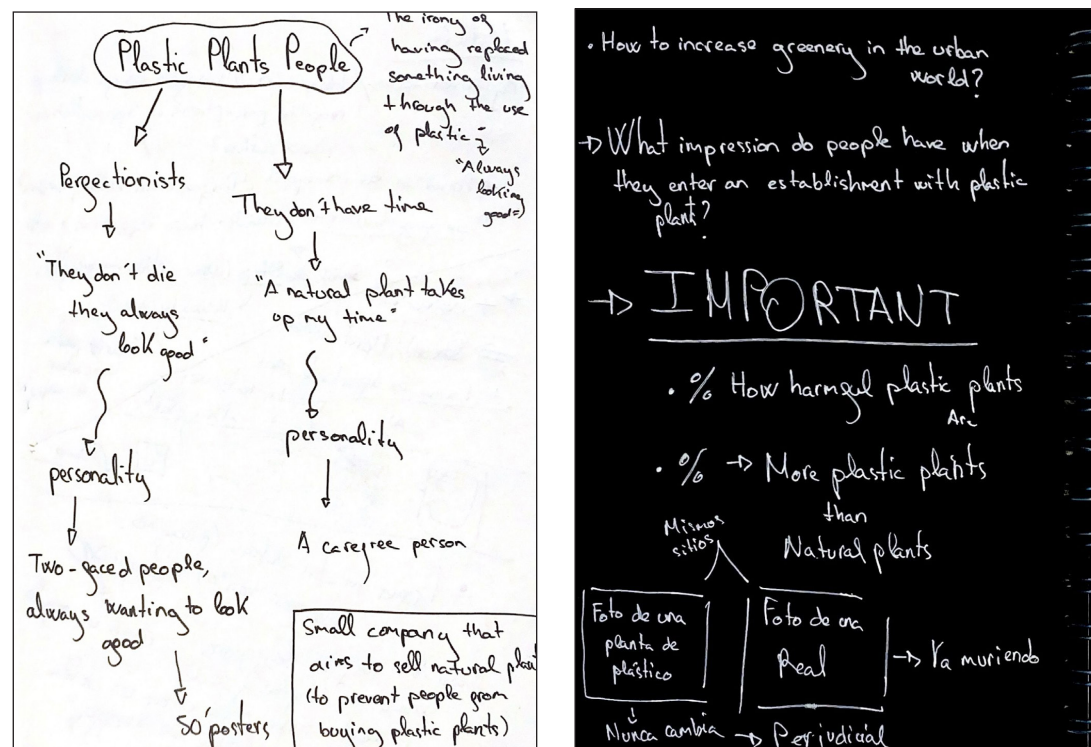 Plastic Plants People
The irony of
having replaced
something living
through the use
of plastic
"Always
looking
good"
Perfectionists
"They don't die
they always
look good"
personality
Two-faced people,
always wanting to look
good
50' posters
They don't have time
"A natural plant takes
up my time"
personality
A carefree person
Small company that
aims to sell natural plan
(to prevent people from
buying plastic plants)
• How to increase greenery in the urban
world?
→ What impression do people have when
they enter an establishment with plastic
plant?
→ IMPORTANT
• % How harmful plastic plants
Are
• % → More plastic plants
than
Natural plants
Mismos
sitios
Foto de una
planta de
plástico
Foto de una
Real
→ Va muriendo
Nunca cambia → Perjudicial